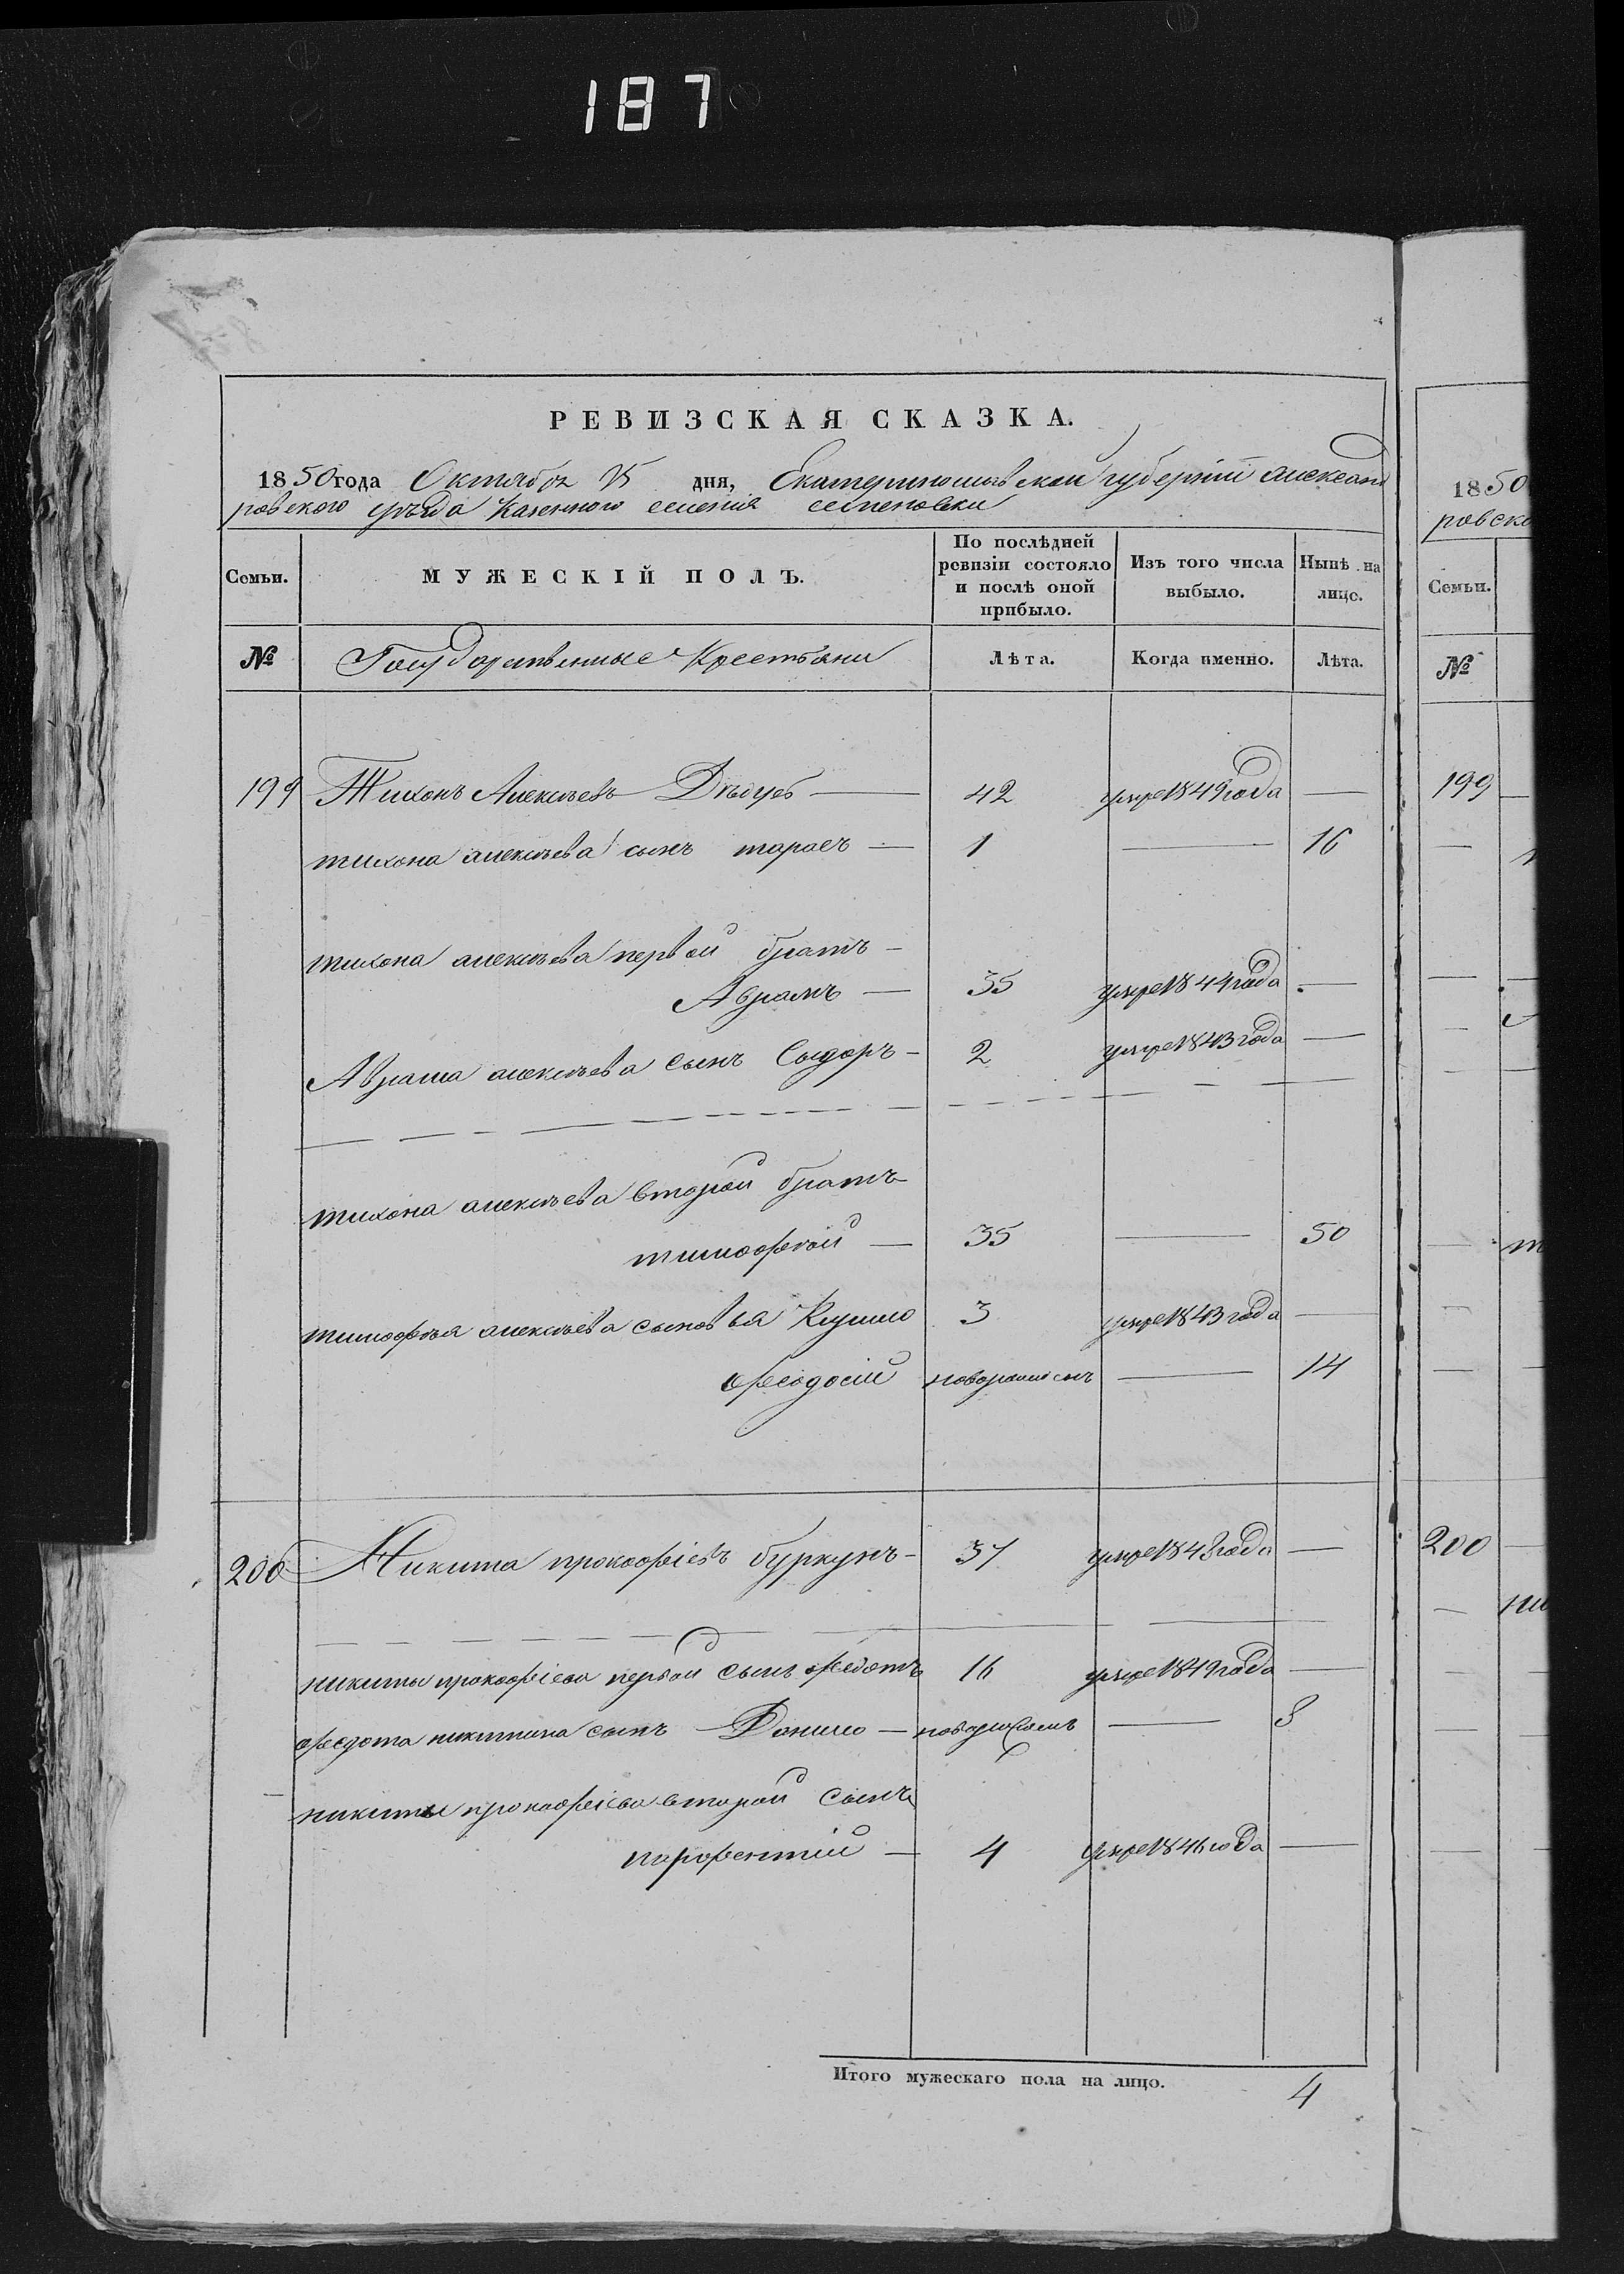 187
РЕВИЗСКАЯ СКАЗКА.
1850 года Октября 25 дня, Екатеринославской губерніи Александ
ровского уѣзда Казенного селенія степановки
Семьи. МУЖЕСКІЙ ПОЛЪ. По послѣдней ревизіи состояло и послѣ оной прибыло. Изъ того числа выбыло. Нынѣ на лицо.
№ Государственные Крестьяни Лѣта. Когда именно. Лѣта.
199 Тихонъ Алексѣевъ 42 умре 1849 года —
тихона алексѣева сынъ тарасъ — 1 — 16
тихона алексѣева первой братъ —
Аврамъ — 35 умре 1844 года —
Аврама алексѣева сынъ Сыдоръ — 2 умре 1843 года —
тихона алексѣева второй братъ
тимофѣй — 35 — 50
тимофѣя алексѣева сыновья 3 умре 1843 года —
феодосій новорожденъ — 14
200 Никита прокофіевъ буркунъ — 37 умре 1848 года —
никиты прокофіева первой сынъ федотъ 16 умре 1849 года —
федота никитина сынъ Данило — новорожденъ — 8
никиты прокофіева второй сынъ
парфентій — 4 умре 1846 года —
Итого мужескаго пола на лицо. 4
1850
ровско
Семьи.
№
199
200
ни